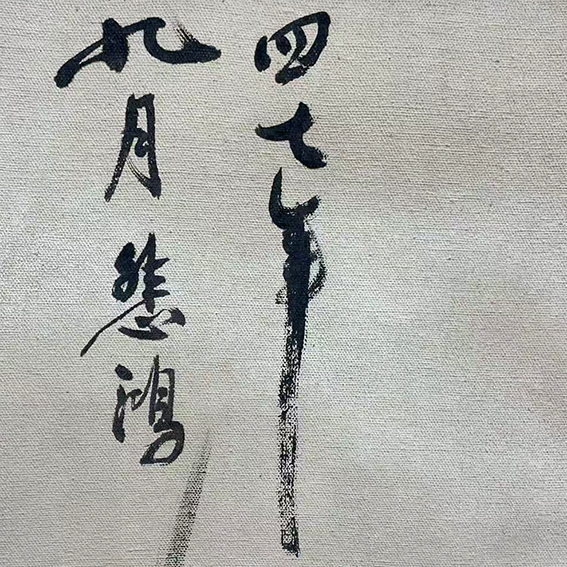 四七年
九月悲鸿